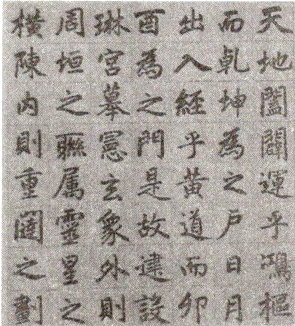 天地闔闢運乎鴻樞
而乹坤為之户日月
出入經乎黃道而卯
酉為之門是故建設
琳宮摹憲玄象外則
周垣之聮属靈星之
橫陳内則重闥之劃